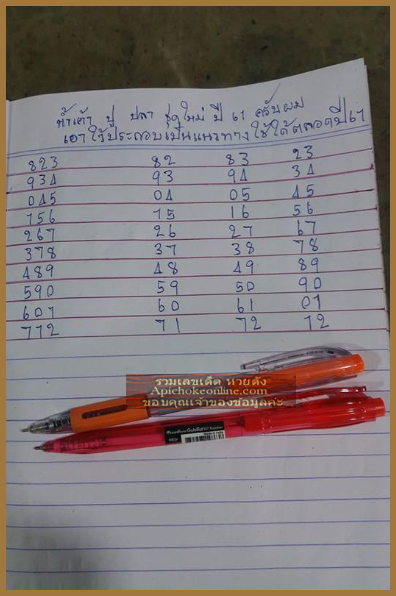 น้ำเต้า ปู ปลา ชุดใหม่ ปี 61 ครับผม
เอาไว้ประกอบเป็นแนวทางใช้ได้ตลอดปี 61
823 82 83 23
934 93 94 34
045 04 05 45
156 15 16 56
267 26 27 67
378 37 38 78
489 48 49 89
590 59 50 90
601 60 61 01
712 71 72 12
รวมเลขเด็ด หวยดัง
Apichokeonline.com
ขอบคุณเจ้าของข้อมูลค่ะ